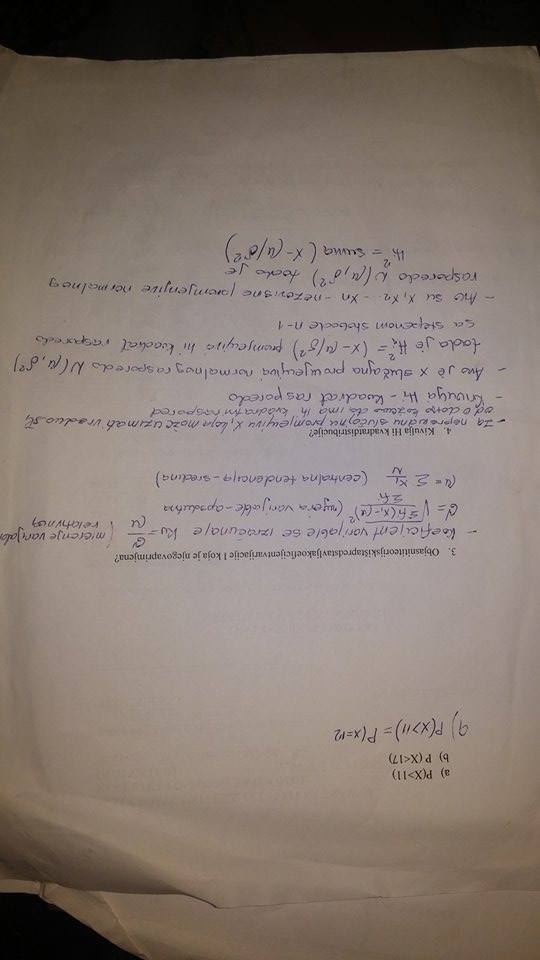 a) P(X>11)
b) P (X<17)
a) P(X>11) = P(X=12
3. Objasnitiorijskištapredstavljakoeficijentvarijacije I koja je njegovaprimjena?
- koeficijent varijable se izračunaje Kv = σ/μ (mjerenje varijab relativnog
σ = √Σfi(xi-μ)²/Σfi (mjera varijable - apsolutna
μ = Σ xi/N (centralna tendencija - sredina)
4. Kivulja Hi kvadratdistribucije?
- Za neprekidnu slučajnu promjenjivu X, koja može uzimati vrednosti
od 0 do +∞ kažemo da ima ih kvadratni raspored
- krivulja Hi - kvadrat rasporedo
- Ako je X slučajna promjenjiva normalnog rasporeda N(μ, δ²)
tada je H² = (X-μ/δ²) promjenjiva hi kvadrat rasporedo
sa stepenom slobode n-1
- Ako su X1, X2 ... Xn - nezavisne promjenjive normalnog
rasporedo N(μ, δ²) tada je
H² = suma (X-(μ/δ²)